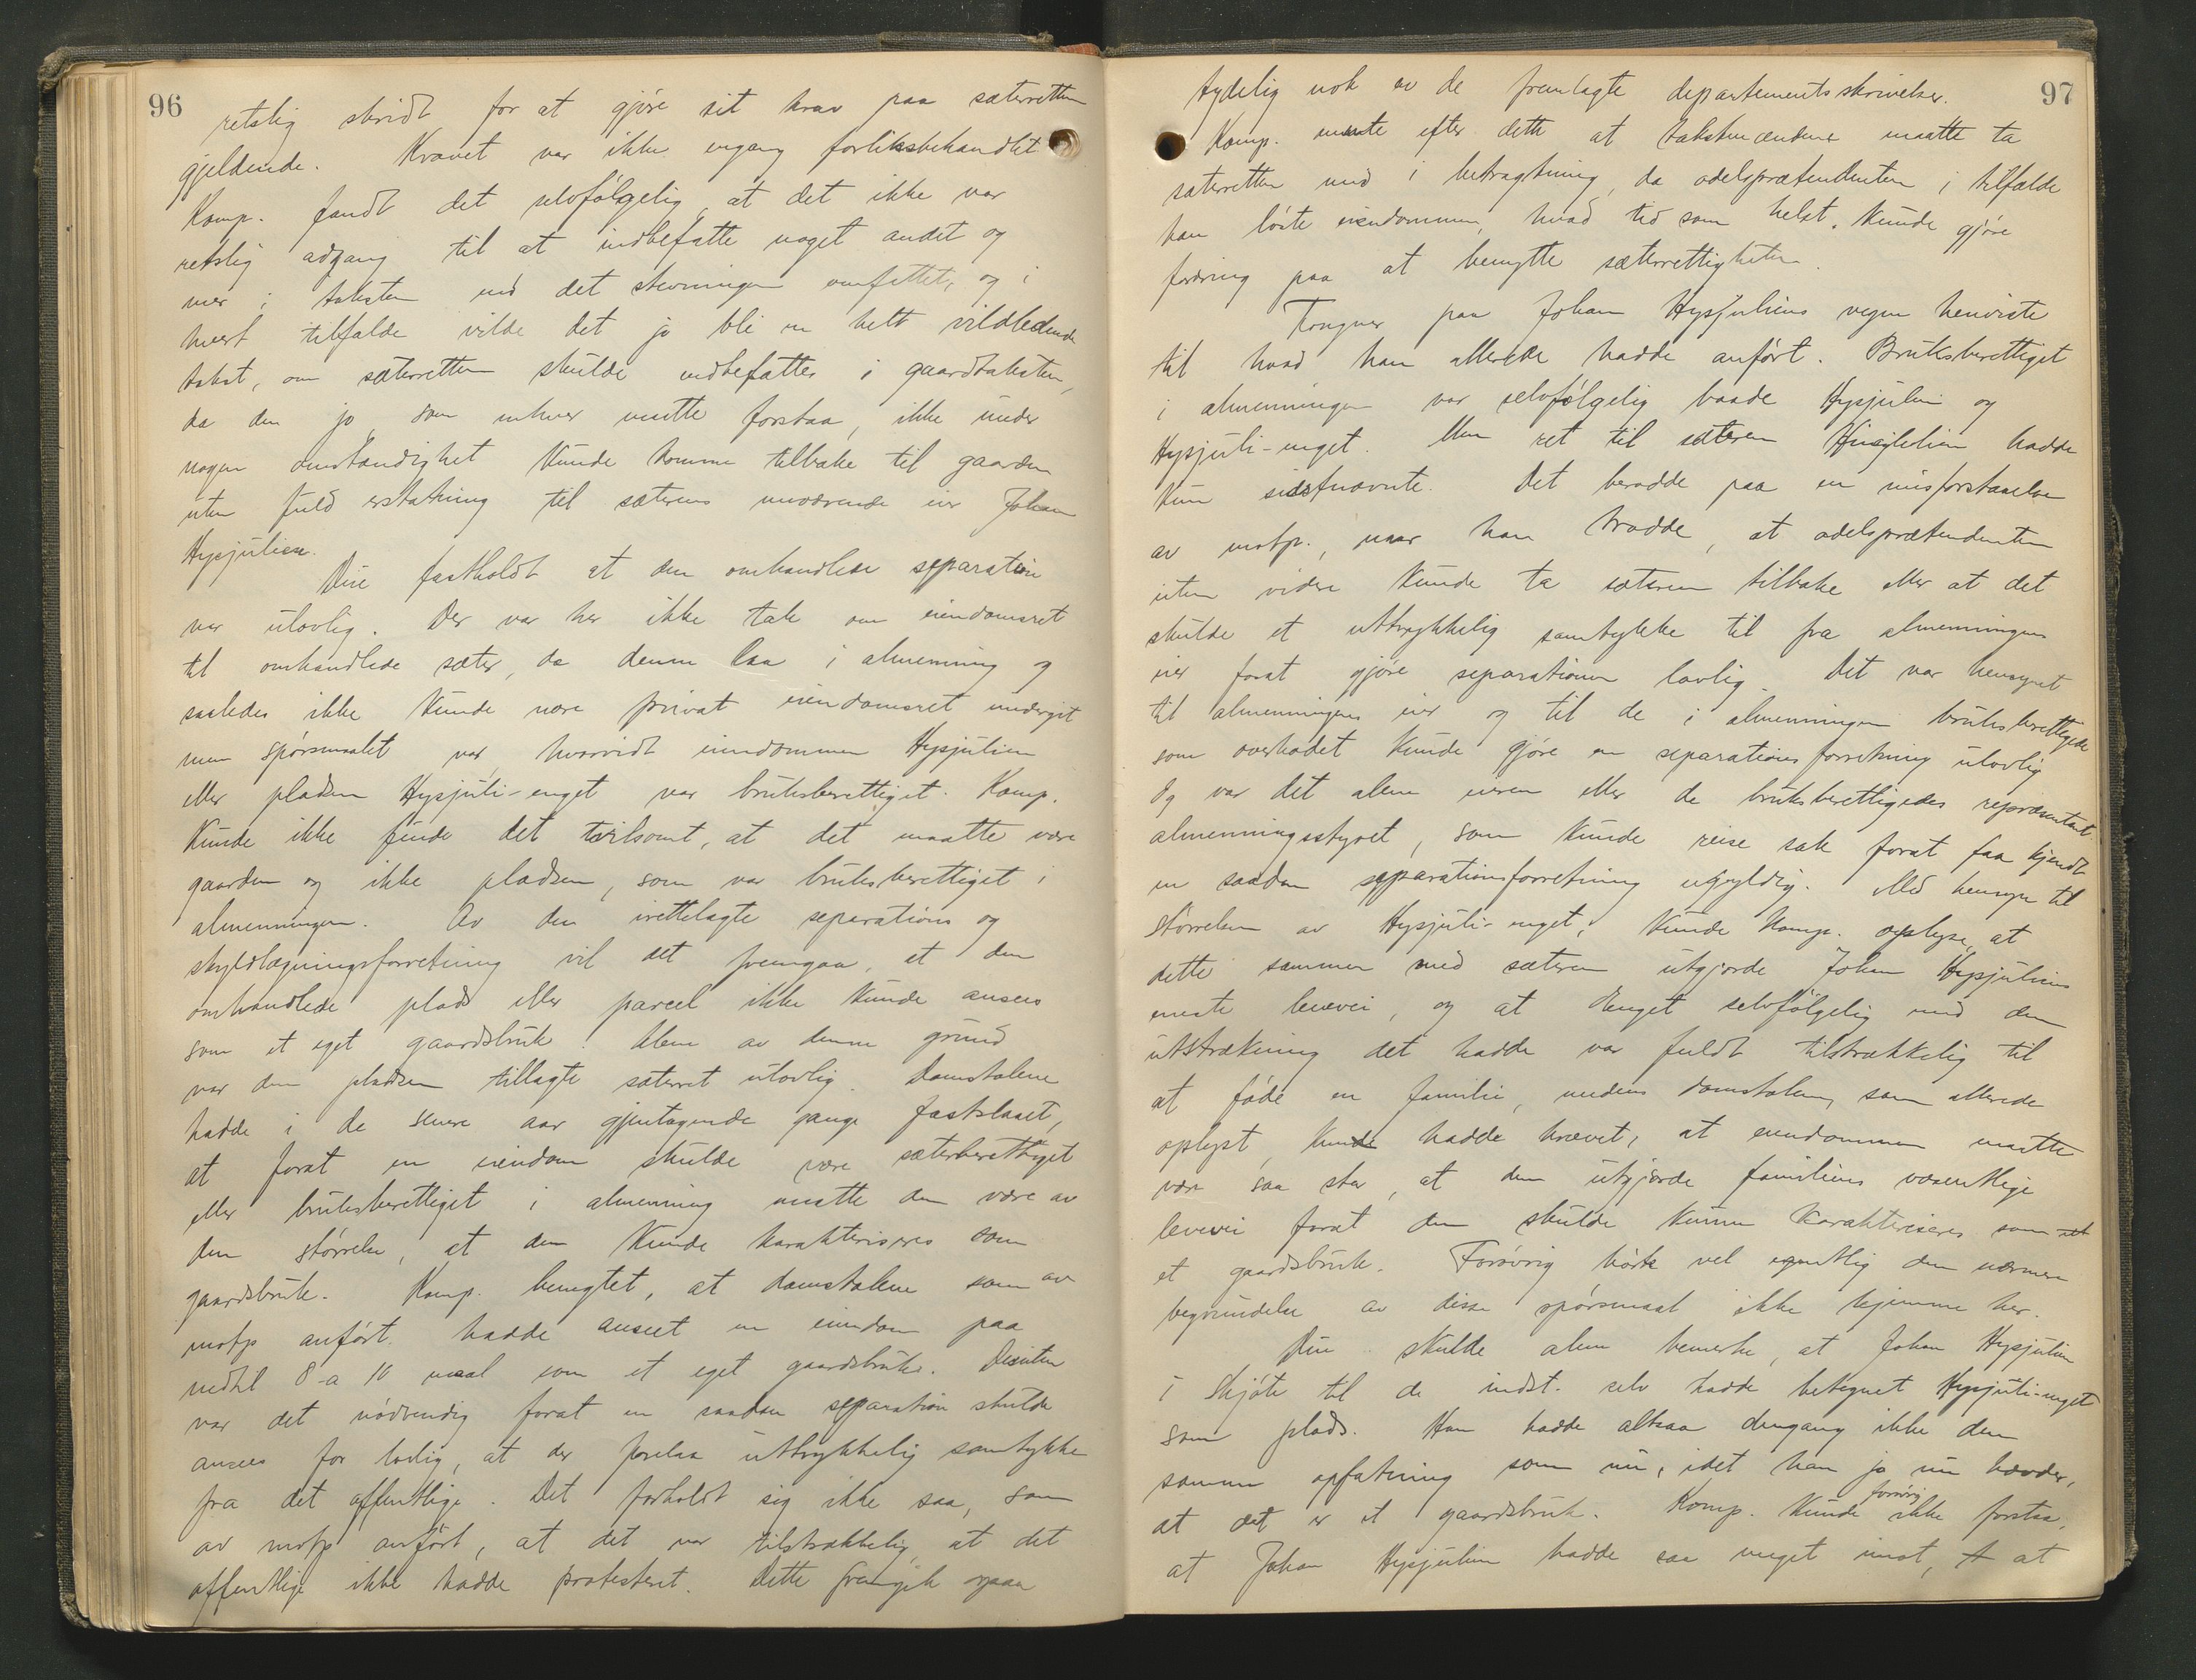 96
retslig skridt for at gjøre sit krav paa sæterretten
gjeldende. Kravet var ikke engang forliksbehandlet
Komp. fandt det selvfølgelig at det ikke var
retslig adgang til at indbefatte noget andet og
mer i taksten end det stevningen omfattet, og i
hvert tilfælde vilde det jo bli en helt vildledende
takst, om sæterretten skulde indbefattes i gaardtaksten,
da den jo, som enhver maatte forstaa, ikke under
nogen omstændighet kunde komme tilbake til gaarden
uten fuld erstatning til sæterens nuværende eier Johan
Hysjulien.
Due fastholdt at den omhandlede separation
var ulovlig. Der var her ikke tale om eiendomsret
til omhandlede sæter, da denne laa i almenning og
saaledes ikke kunde være privat eiendomsret undergit
men spørsmaalet var, hvorvidt eiendommen Hysjulien
eller pladsen Hysjuli-enget var bruksberettiget. Komp.
kunde ikke finde det tvilsomt, at det maatte være
gaarden og ikke pladsen, som var bruksberettiget i
almenningen. Av den irettelagte separations og
skyldlægningsforretning vil det fremgaa, at den
omhandlede plads eller parcel ikke kunde ansees
som et eget gaardsbruk. Alene av denne grund
var den pladsen tillagte sæterret ulovlig. Domstolene
hadde i de senere aar gjentagende gange fastslaaet,
at forat en eiendom skulde være sæterberettiget
eller bruksberettiget i almenning maatte den være av
den størrelse, at den kunde karakteriseres som
gaardsbruk. Komp. benegtet, at domstolene som av
motp anført hadde anseet en eiendom paa
nedtil 8 a 10 maal som et eget gaardsbruk. Desuten
var det nødvendig forat en saadan separation skulde
ansees for lovlig, at der forelaa uttrykkelig samtykke
fra det offentlige. Det forholdt sig ikke saa, som
av motp anført, at det var tilstrækkelig, at det
offentlige ikke hadde protesteret. Dette fremgik ogsaa
97
tydelig nok av de fremlagte departementsskrivelser.
Komp. mente efter dette at takstmændene maatte ta
sæterretten med i betragtning, da odelsprætendenten i tilfælde
han løste eiendommen, hvad tid som helst, kunde gjøre
fordring paa at benytte sæterrettigheten.
Tongner paa Johan Hysjuliens vegne henviste
til hvad han allerede hadde anført. Bruksberettiget
i almenningen var selvfølgelig baade Hysjulien og
Hysjuli-enget. Men ret til sæteren hadde
kun sidstnævnte. Det berodde paa en misforstaaelse
av motp., naar han trodde, at odelsprætendenten
uten videre kunde ta sæteren tilbake eller at det
skulde et uttrykkelig samtykke til fra almenningens
eier forat gjøre separationen lovlig. Det var hensynet
til almenningens eier og til de i almenningen bruksberettigede
som overhodet kunde gjøre en separationsforretning ulovlig
Og var det alene eieren eller de bruksberettigedes repræsentant
almenningsstyret, som kunde reise sak forat faa kjendt
en saadan separationsforretning ugyldig. Med hensyn til
størrelsen av Hysjuli-enget, kunde Komp. oplyse, at
dette sammen med sæteren utgjorde Johan Hysjuliens
eneste levevei, og at Enget selvfølgelig med den
utstrækning det hadde var fuldt tilstrækkelig til
at føde en familie, medens domstolene, som allerede
oplyst, kun hadde krævet, at eiendommen maatte
være saa stor, at den utgjorde familiens væsentlige
levevei forat den skulde kunne karakteriseres som
et gaardsbruk. Forøvrig hørte vel egentlig den nærmere
begrundelse av disse spørsmaal ikke hjemme her.
Due skulde alene bemerke, at Johan Hysjulien
i skjøte til de indst. selv hadde betegnet Hysjuli-enget
som plads. Han hadde altsaa dengang ikke den
samme opfatning som nu, idet han jo nu hævder,
at det er et gaardsbruk. Komp. kunde forøvrig ikke forstaa,
at Johan Hysjulien hadde saa meget imot, at